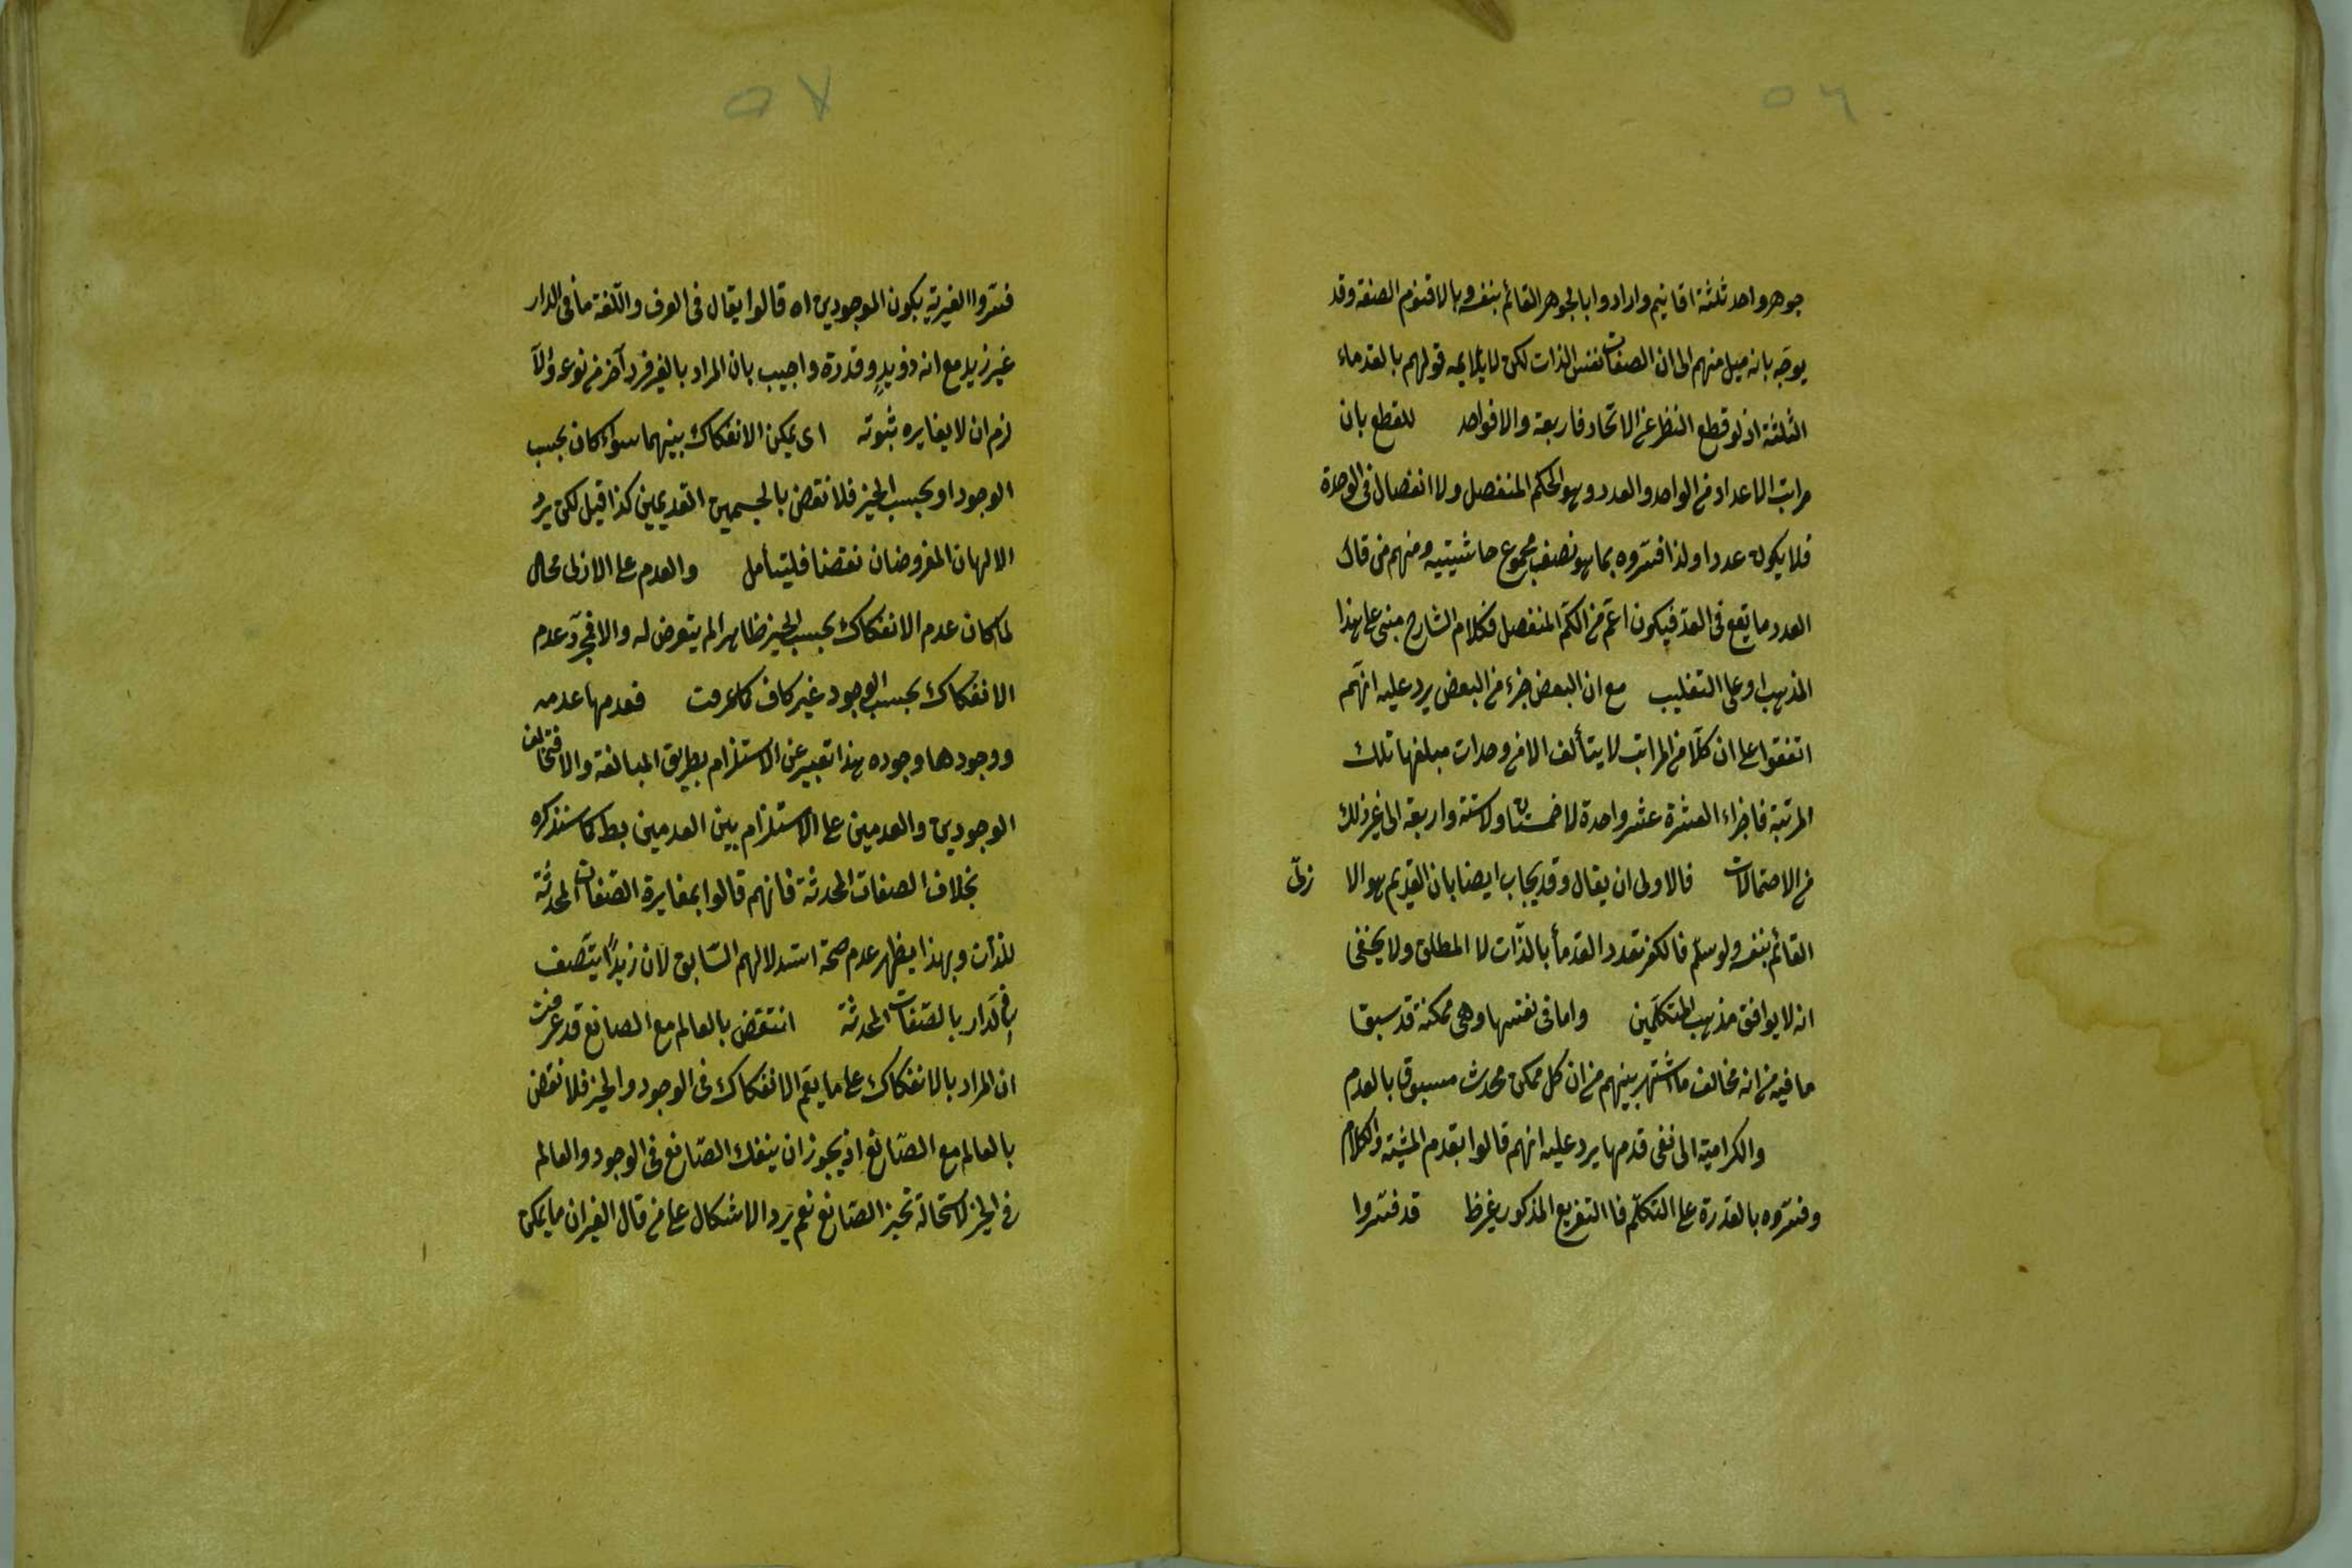 ٥٦
جوهر واحد ثلثة اقانيم وارادوا بالجوهر القائم بنفسه وبالاقنوم الصفة وقد
يوجّه بانه ميل منهم الى ان الصفات نفس الذات لكن لا يلايمه قولهم بالقدماء
الثلثة اذ لو قطع النظر عن الاتحاد فاربعة والا فواحد للقطع بان
مراتب الاعداد من الواحد والعدد وهو الكم المنفصل ولا انفصال فى الوحدة
فلا يكون عددا ولذا فسّروه بما هو نصف مجموع حاشيتيه ومنهم من قال
العدد ما يقع فى العدّ فيكون اعم من الكمّ المنفصل فكلام الشارح مبنى على هذا
المذهب او على التغليب مع ان البعض جزء من البعض يرد عليه انهم
اتفقوا على ان كلّا من المراتب لا يتألف الا من وحدات مبلغها تلك
المرتبة فاجزاء العشرة عشر واحدة لا خمستان ولا ستة واربعة الى غير ذلك
من الاحتمالات فالاولى ان يقال وقد يجاب ايضا بان القديم هو الا زلىّ
القائم بنفسه ولو سلّم فالكفر تعدد القدمأ بالذّات لا المطلق ولا يخفى
انه لا يوافق مذهب المتكلمين واما فى نفسها وهى ممكنة قد سبق
ما فيه من انه مخالف ما اشتهر بينهم من ان كل ممكن محدث مسبوق بالعدم
والكرامية الى نفى قدمها يرد عليه انهم قالوا بقدم المشيّة والكلام
وفسّروه بالقدرة على التكلّم فاالتفريع المذكور غير ظ قد فسّروا
٥٧
فسّروا الغيرية بكون الموجودين اه قالوا يقال فى العرف واللّغة ما فى الدار
غير زيد مع انه ذو يدٍ وقدرة واجيب بان المراد بالغير فرد آخر من نوعه والّا
لزم ان لا يغايره ثبوته اى يمكن الانفكاك بينهما سواء كان بحسب
الوجود او بحسب الحيز فلا نقض بالجسمين القديمين كذا قيل لكن يرد
الالهان المفروضان نقضا فليتأمل والعدم على الازلى محال
لما كان عدم الانفكاك بحسب الحيز ظاهرا لم يتعرض له والا فمجرّد عدم
الانفكاك بحسب الوجود غير كاف كما عرفت فعدمها عدمه
ووجودها وجوده هذا تعبير عن الاستلزام بطريق المبالغة والا فتخالف
الوجودين والعدمين على الاستلزام بين العدمين بط كما ستذكره
بخلاف الصفات المحدثة فانهم قالوا بمغايرة الصّفات المحدثة
للذات وبهذا يظهر عدم صحة استدلالهم السّابق لان زيدًا يتّصف
فى الدار بالصّفات المحدثة انتقض بالعالم مع الصانع قد عرفت
ان المراد بالانفكاك على ما يعم الانفكاك فى الوجود والحيز فلا نقض
بالعالم مع الصّانع اذ يجوز ان ينفك الصّانع فى الوجود والعالم
فى الحيز لاستحالة تحيز الصّانع نعم يرد الاشكال على من قال الغيران ما يمكن